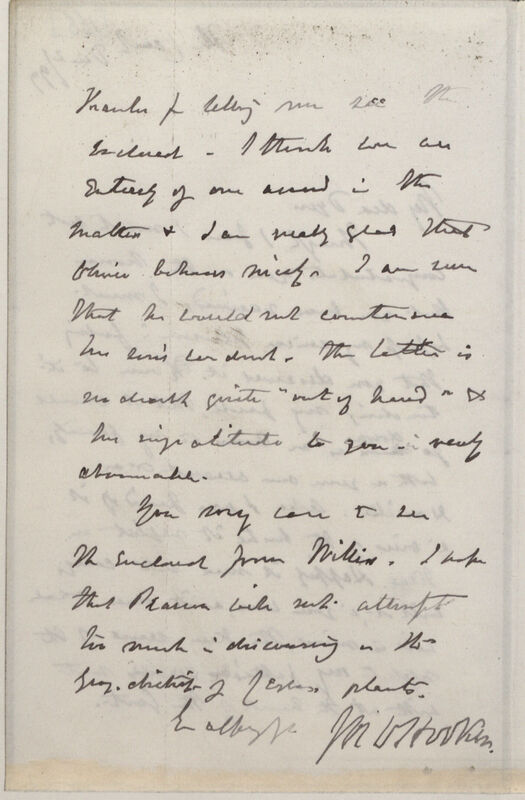 Thanks for letting me see the
enclosed - I think we are
entirely of one accord in the
matter & I am really glad that
Oliver behaves nicely. I am sure
that he would not countenance
his son's conduct. The latter is
no doubt quite "out of hand" &
his ingratitude to you is really
abominable.
You may care to see
the enclosed from Willis. I hope
that Pearson will not attempt
too much in discussing the
Geog. distrib. of Ceylon plants.
Jos. D Hooker.